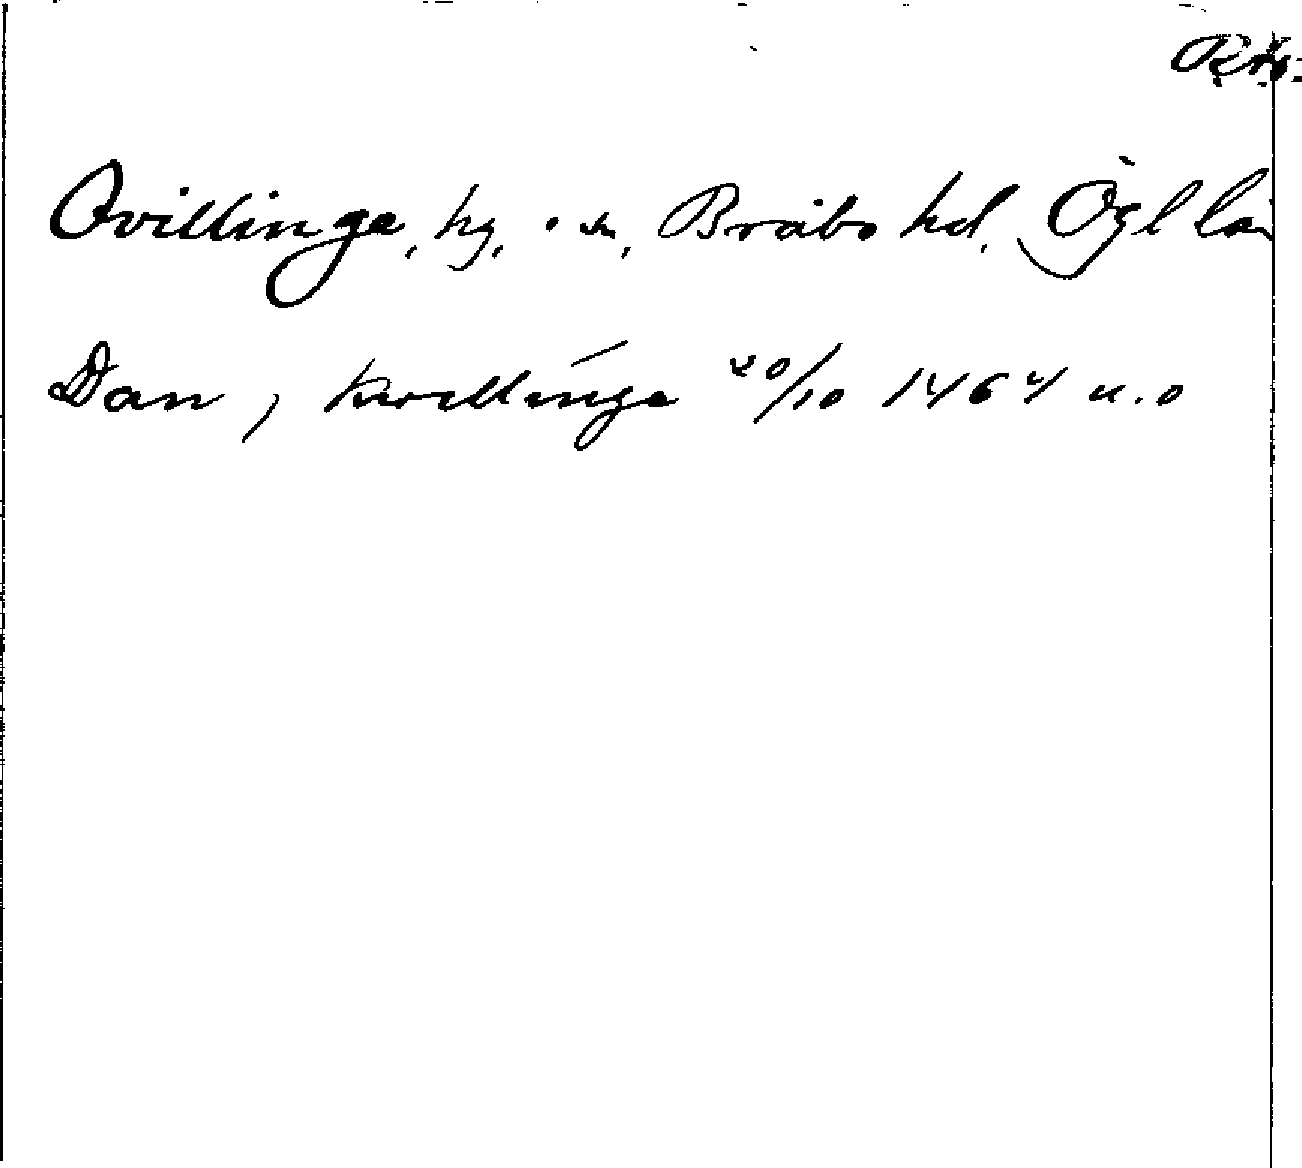 Qvillinge, hg, o sn, Bråbo hd, Ögl län
Dan, i kwillinge 20/10 1464 u.o